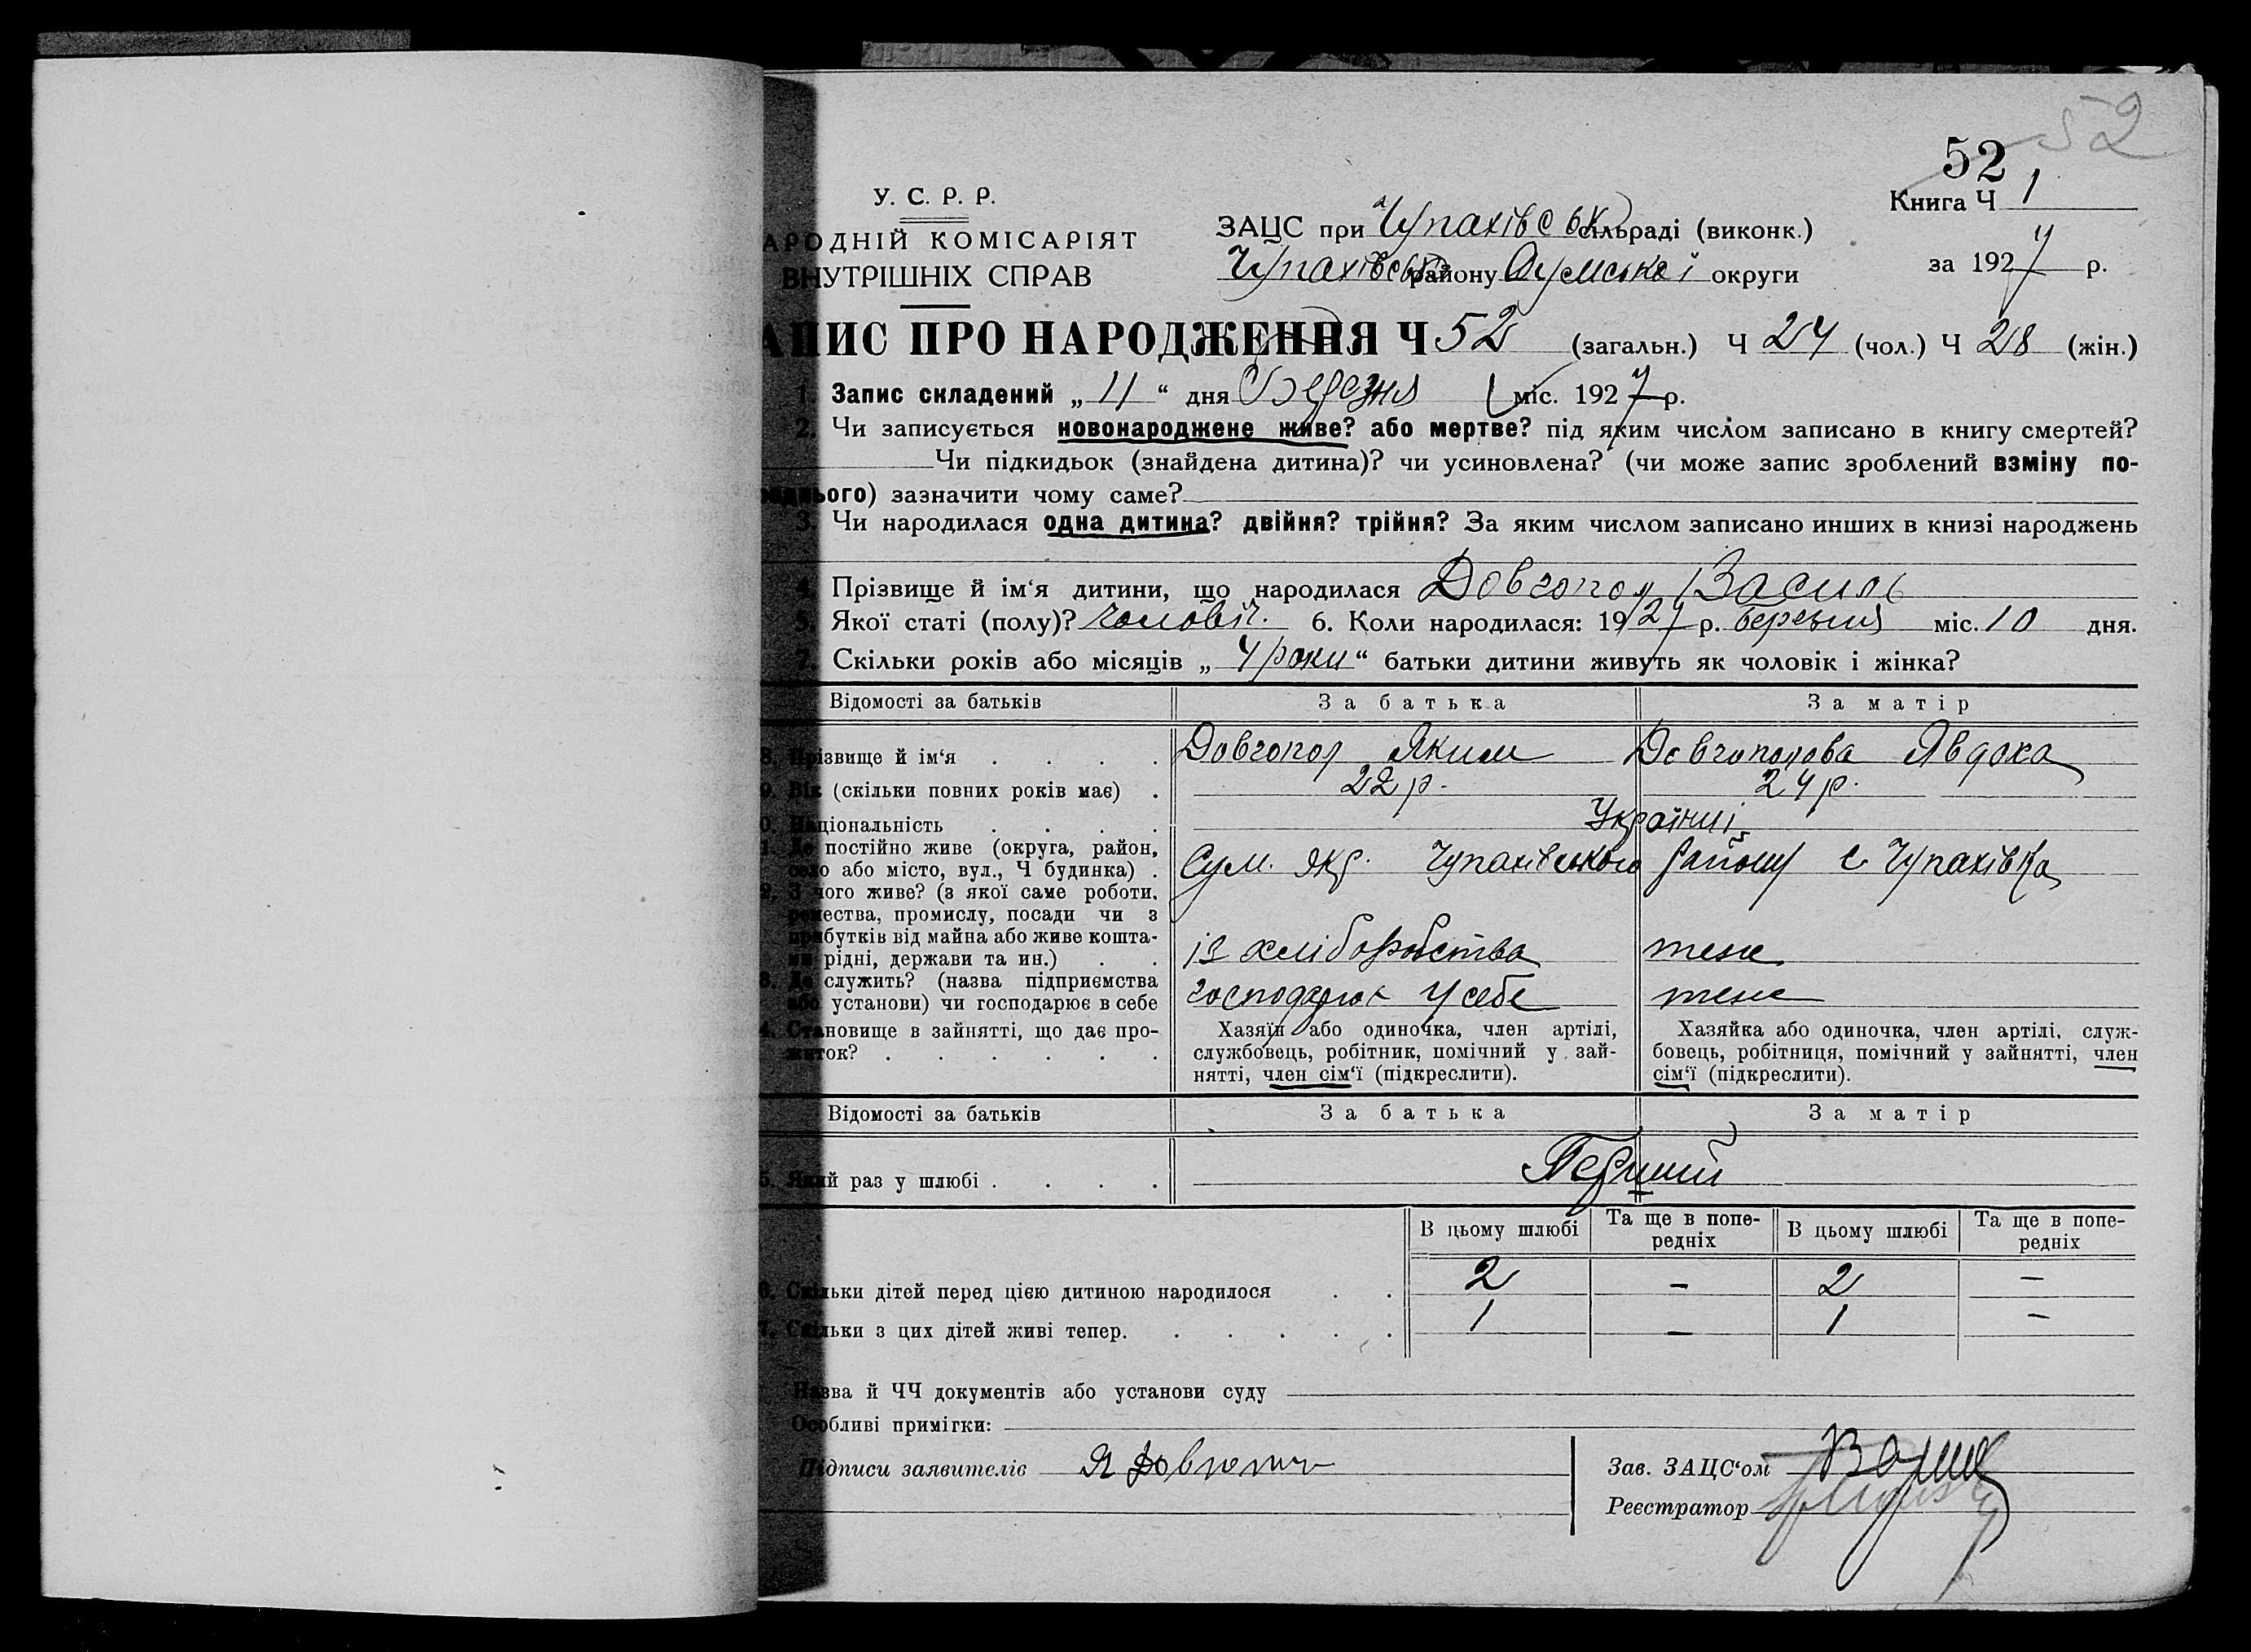 52
52
Книга Ч 1
У. С. Р. Р.
АРОДНІЙ КОМІСАРІЯТ
ВНУТРІШНІХ СПРАВ
ЗАЦС при Чупахівськ сільраді (виконк.)
Чупахівськ району Сумської округи
за 1927 р.
АПИС ПРО НАРОДЖЕННЯ Ч 52 (загальн.) Ч 24 (чол.) Ч 28 (жін.)
1. Запис складений „ 11 “ дня Березня міс. 1927 р.
2. Чи записується новонароджене живе? або мертве? під яким числом записано в книгу смертей?
Чи підкидьок (знайдена дитина)? чи усиновлена? (чи може запис зроблений взміну по-
реднього) зазначити чому саме?
3. Чи народилася одна дитина? двійня? трійня? За яким числом записано инших в книзі народжень
4. Прізвище й ім‘я дитини, що народилася Довгопол Василь
5. Якої статі (полу)? чоловіч. 6. Коли народилася: 1927 р. березня міс. 10 дня.
7. Скільки років або місяців „ 4 роки “ батьки дитини живуть як чоловік і жінка?
Відомості за батьків За батька За матір
8. Прізвище й ім‘я . . . . Довгопол Яким Довгополова Явдоха
9. Вік (скільки повних років має) . 22 р. 24 р.
0. Національність . . . . Українці
1. Де постійно живе (округа, район,
село або місто, вул., Ч будинка) . Сум. окр. Чупахівського району с Чупахівка
2. З чого живе? (з якої саме роботи,
ремества, промислу, посади чи з
прибутків від майна або живе кошта-
ми рідні, держави та ин.) . . із хліборобства теж
3. Де служить? (назва підприємства
або установи) чи господарює в себе господарює у себе теж
4. Становище в зайнятті, що дає про-
житок? . . . . . .
Хазяїн або одиночка, член артілі,
службовець, робітник, помічний у зай-
нятті, член сім‘ї (підкреслити).
Хазяйка або одиночка, член артілі, служ-
бовець, робітниця, помічний у зайнятті, член
сім‘ї (підкреслити).
Відомості за батьків За батька За матір
5. Який раз у шлюбі . . . . Перший
В цьому шлюбі Та ще в попе-
редніх В цьому шлюбі Та ще в попе-
редніх
6. Скільки дітей перед цією дитиною народилося . . 2 – 2 –
7. Скільки з цих дітей живі тепер. . . . . . . 1 – 1 –
Назва й ЧЧ документів або установи суду
Особливі примітки:
Підписи заявителів Я Довгопол
Зав. ЗАЦС‘ом
Реєстратор